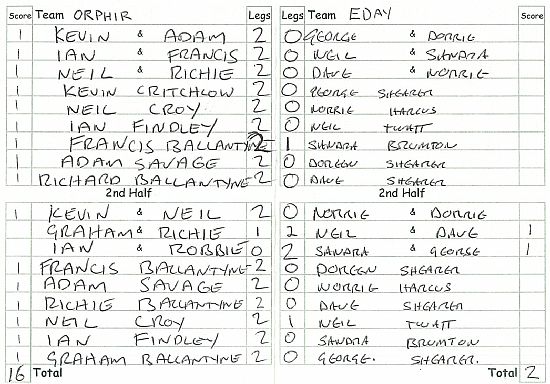 Score Team ORPHIR Legs Legs Team EDAY Score
1 KEVIN & ADAM 2 0 GEORGE & DORRIE
1 IAN & FRANCIS 2 0 NEIL & SANDRA
1 NEIL & RICHIE 2 0 DAVE & NORRIE
1 KEVIN CRITCHLOW 2 0 GEORGE SHEARER
1 NEIL CROY 2 0 NORRIE HARCUS
1 IAN FINDLEY 2 0 NEIL TWATT
1 FRANCIS BALLANTYNE 2 1 SANDRA BRUMTON
1 ADAM SAVAGE 2 0 DOREEN SHEARER
1 RICHARD BALLANTYNE 2 0 DAVE SHEARER
2nd Half 2nd Half
1 KEVIN & NEIL 2 0 NORRIE & DORRIE
GRAHAM & RICHIE 1 2 NEIL & DAVE 1
IAN & ROBBIE 0 2 SANDRA & GEORGE 1
1 FRANCIS BALLANTYNE 2 0 DOREEN SHEARER
1 ADAM SAVAGE 2 0 NORRIE HARCUS
1 RICHIE BALLANTYNE 2 0 DAVE SHEARER
1 NEIL CROY 2 1 NEIL TWATT
1 IAN FINDLEY 2 0 SANDRA BRUMTON
1 GRAHAM BALLANTYNE 2 0 GEORGE. SHEARER.
16 Total Total 2